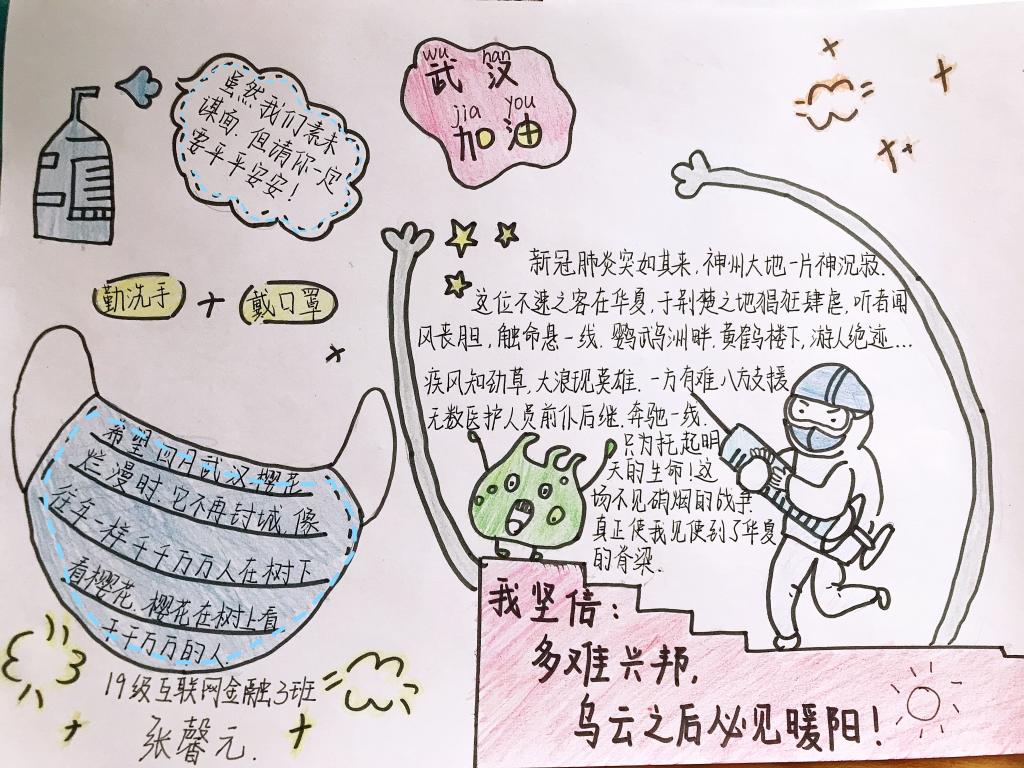 wu han
武汉
jia you
加油
虽然我们素未
谋面,但请你一定
要平平安安!
勤洗手 + 戴口罩
新冠肺炎突如其来,神州大地一片神沉寂.
这位不速之客在华夏,于荆楚之地猖狂肆虐,听者闻
风丧胆,触命悬一线.鹦鹉洲畔.黄鹤楼下,游人绝迹...
疾风知劲草,大浪现英雄.一方有难八方支援
无数医护人员前仆后继.奔驰一线.
只为托起明
天的生命!这
场不见硝烟的战争
真正使我见使到了华夏
的脊梁.
希望四月武汉樱花
烂漫时,它不再封城,像
往年一样千千万万人在树下
看樱花,樱花在树上看
千千万万的人.
19级互联网金融3班
张馨元.
我坚信:
多难兴邦,
乌云之后必见暖阳!